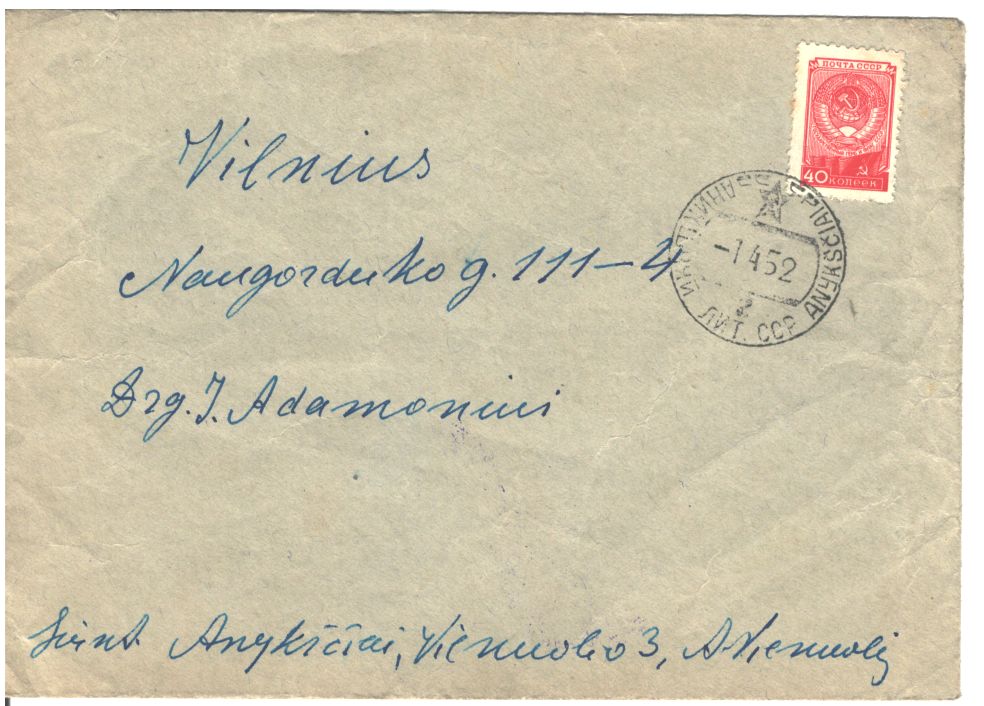 ПОЧТА СССР
40 КОПЕЕК
ЛИТ. ССР ANYKŠČIAI
-1 4 52
Vilnius
Naugarduko g. 111–4
Drg. J. Adamoniui
Siunt. Anykščiai, Vienuolio 3, A. Vienuolis